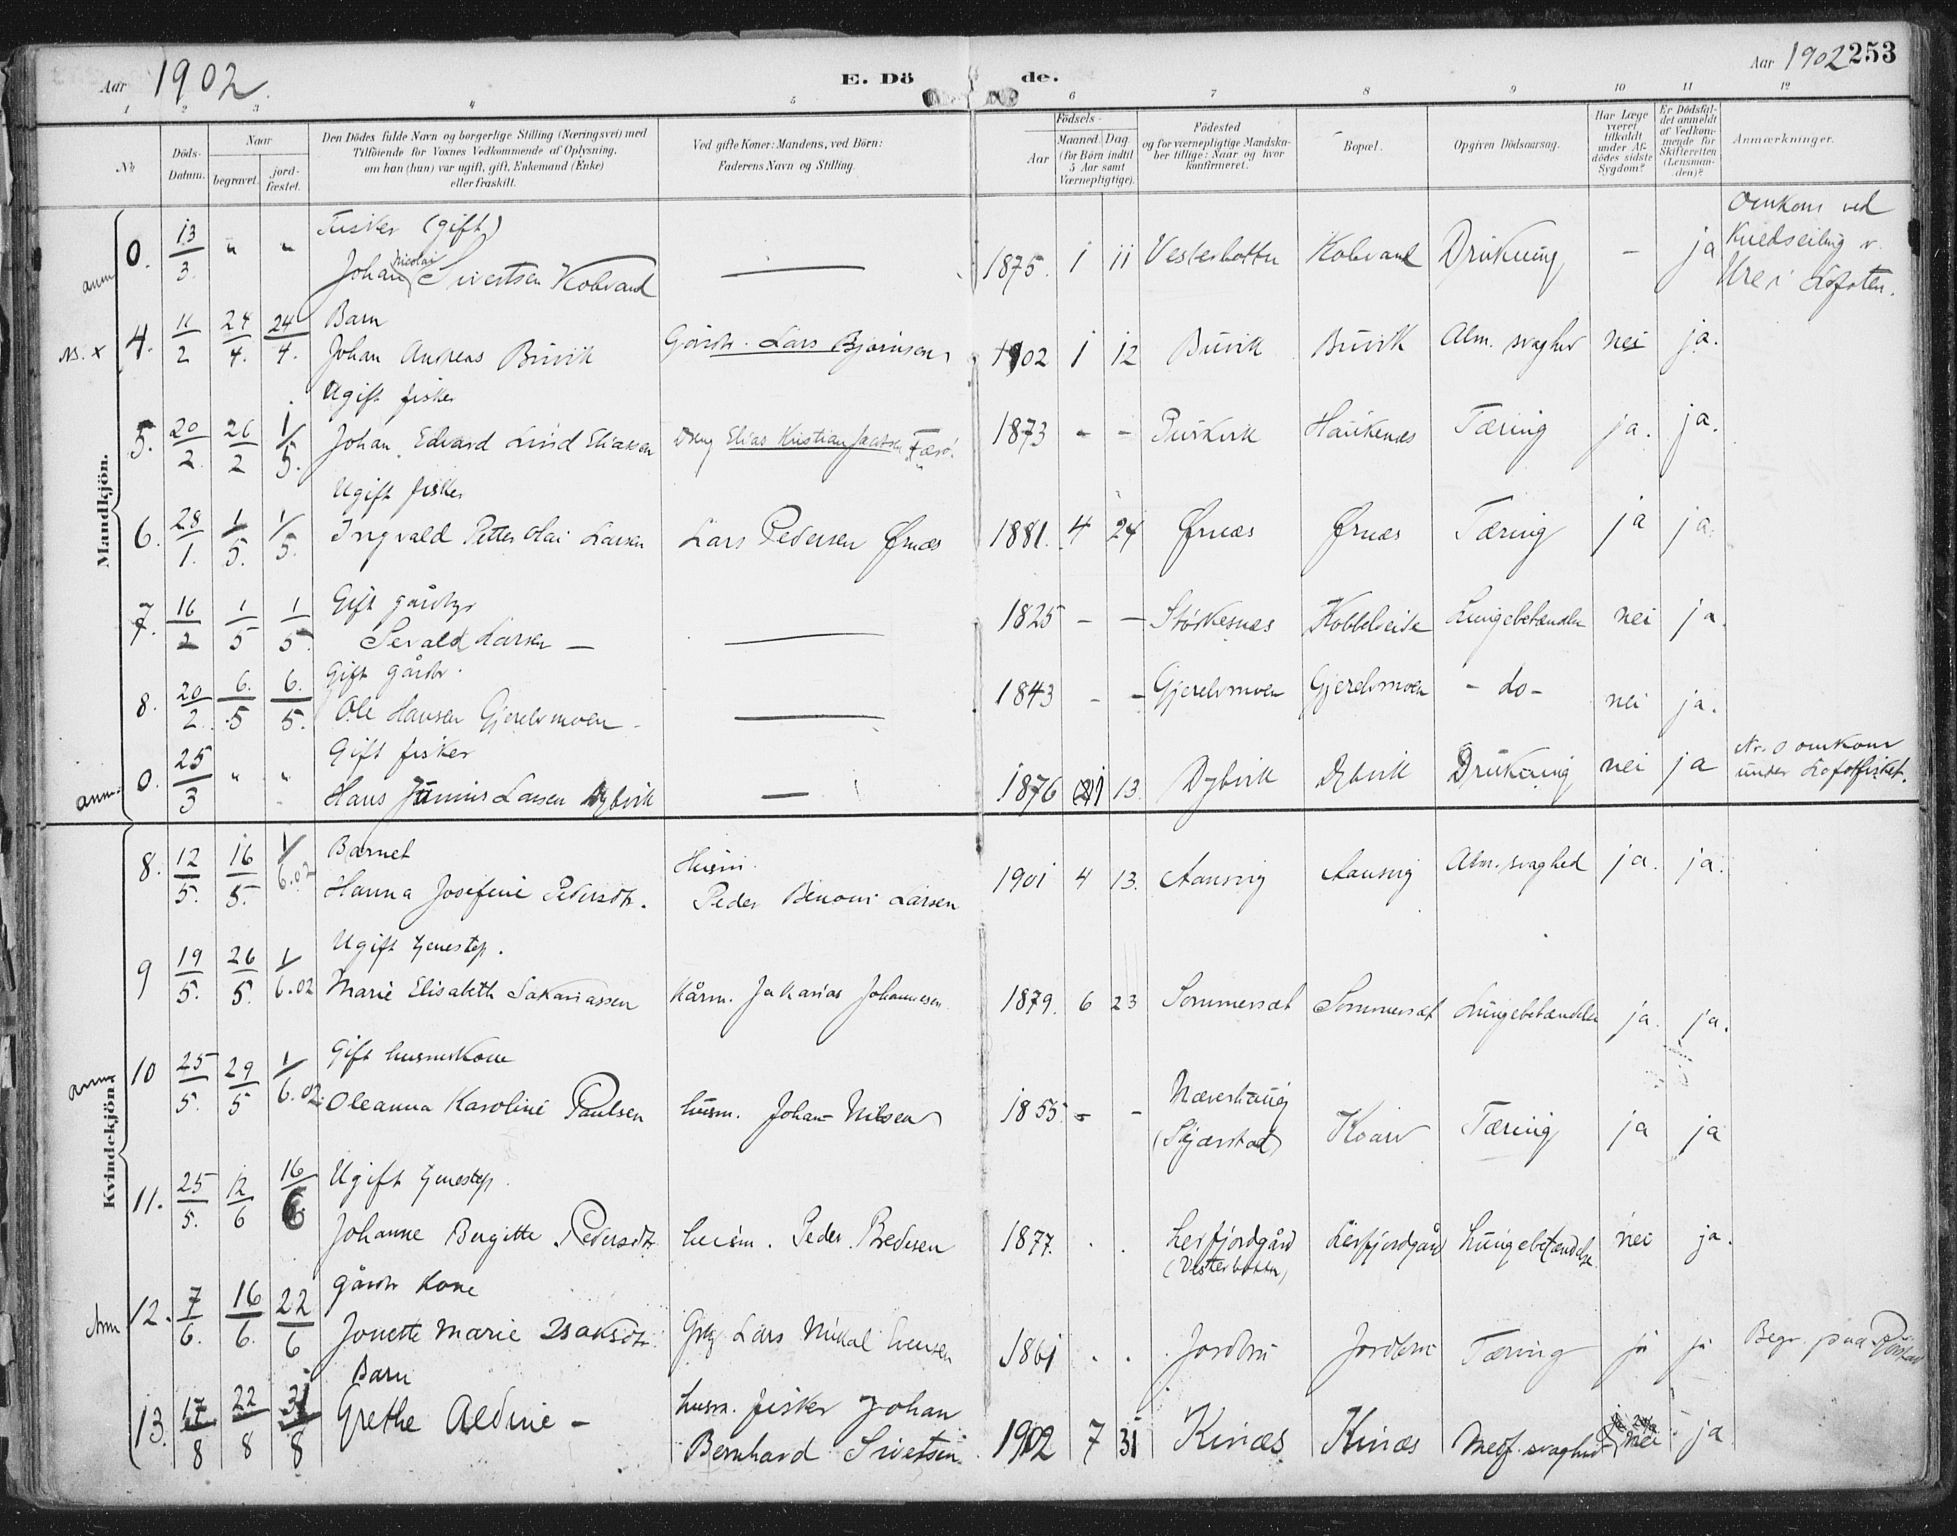 Aar 1902. E. Döde. Aar 1902 253
1 2 3 4 5 6 7 8 9 10 11 12
No.
Döds-Datum.
Naar
begravet.
jord-fæstet.
Den Dödes fulde Navn og borgerlige Stilling (Næringsvei) med
Tilföiende for Voxnes Vedkommende af Oplysning,
om han (hun) var ugift, gift, Enkemand (Enke)
eller fraskilt.
Ved gifte Koner: Mandens, ved Börn:
Faderens Navn og Stilling.
Födsels-
Aar
Maaned. Dag
(for Börn indtil
5 Aar samt
Værnepligtige).
Födested
og for værnepligtige Mandska-
ber tillige: Naar og hvor
konfirmeret.
Bopæl.
Opgiven Dödsaarsag.
Har Læge
været
tilkaldt
under Af-
dödes sidste
Sygdom?
Er Dödsfal-
det anmeldt
af Vedkom-
mende for
Skifteretten
(Lensman-
den)?
Anmærkninger.
Mandkjön.
Fisker (gift)
anm 0. 13/3. " " Johan Nicolai Sivertsen Kobvand — 1875. 1 11 Vesterbotten Kobvand Drukning – ja Omkom ved
Kuldseiling v.
Ure i Lofoten.
Barn
4. 11/2 24/4. 24/4. Johan Andreas Buvik Gårdbr. Lars Bjørnsen 1902 1 12 Buvik Buvik Alm. svaghed nei ja.
Ugift fisker
5. 20/2 26/2 1/5. Johan Edvard Lind Eliassen Elias Kristian 1873 - - Haukenæs Tæring ja. ja.
Ugift fisker
6. 28/1. 1/5. 1/5. Ingvald Petter Olai Larsen Lars Pedersen Ørnæs 1881. 4 24 Ørnæs Ørnæs Tæring ja ja.
Gift gårdbr
7. 16/2 1/5 1/5. Sevald Larsen — 1825 - - Størkesnæs Kobbelveide Lungebetændelse nei ja.
Gift gårdbr.
8. 20/2. 6./5 6./5. Ole Hansen Gjerelvmoen — 1843 - - Gjerelvmoen Gjerelvmoen - do - nei ja.
Gift fisker
anm. 0. 25/3 " " Hans Larsen Dybvik — 1876 1 13. Dybvik Dybvik Drukning nei ja Nr. 0 omkom
under Lofotfisket.
Kvindekjön.
Barnet
8. 12/5. 16/5. 1/6.02 Hanna Josefine Pedersdtr. Husm.
Peder Benoni Larsen 1901 4 13. Aansvig Aansvig Alm. svaghed ja. ja.
Ugift tjenestep.
9 19/5. 26/5. 1/6.02 Marie Elisabeth Sakariassen Kårm. Zakarias Johannesen 1879. 6 23 Sommerset Sommerset Lungebetændelse ja. ja.
Gift husmskone
anm 10 25/5. 29/5 1/6.02. Oleanna Karoline Paulsen husm. Johan Nilsen 1855. - - Næverhaug
(Skjærstad) Koarv Tæring ja ja
Ugift tjenestep.
11. 25/5. 12/6 16/6 Johanne Bergitte Pedersdtr. husm. Peder Bredesen 1877. . . Lerfjordgård
(Vesterbotten) Leirfjordgård Lungebetændelse. nei ja.
gårdbr kone
Anm 12. 7/6. 16/6. 22/6 Jonette Marie Isaksdtr. Lars Mikal 1861 . . Jordbru Jordbru Tæring ja ja Begr. paa Rørstad
Barn
13. 17/8 22/8 31/8 Grethe Aldine - husm. fisker Johan
Bernhard Sivertsen. 1902 7 31 Kinæs Kinæs Medf. svaghed nei ja